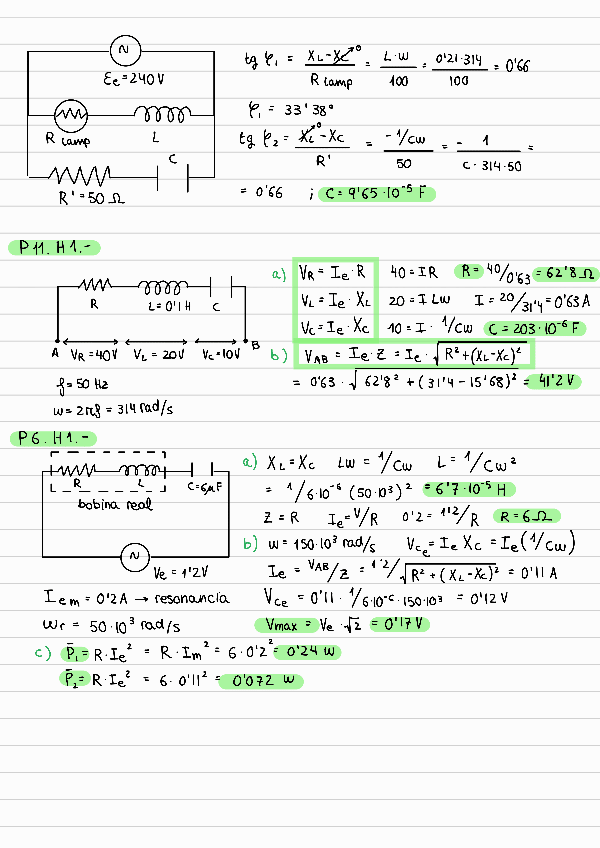 εe = 240V
R lamp L
C
R' = 50 Ω
tg φ₁ = (XL - XC→0) / R lamp = L·w / 100 = 0'21·314 / 100 = 0'66
φ₁ = 33'38°
tg φ₂ = (XL→0 - XC) / R' = -1/cw / 50 = - 1 / c·314·50 =
= 0'66 ; C = 9'65·10⁻⁵ F
P11. H1.-
R L = 0'1 H C
A VR = 40V VL = 20V Vc = 10V B
f = 50 Hz
w = 2πf = 314 rad/s
a) VR = Ie·R 40 = IR R = 40/0'63 = 62'8 Ω
VL = Ie·XL 20 = I Lw I = 20/31'4 = 0'63 A
Vc = Ie·Xc 10 = I·1/cw C = 203·10⁻⁶ F
b) VAB = Ie·Z = Ie·√(R² + (XL-Xc)²)
= 0'63·√(62'8² + (31'4 - 15'68)²) = 41'2 V
P6. H1.-
R L C = 6μF
bobina real
Ve = 1'2V
Iem = 0'2A → resonancia
wr = 50·10³ rad/s
a) XL = Xc Lw = 1/cw L = 1/cw²
= 1/6·10⁻⁶ (50·10³)² = 6'7·10⁻⁵ H
Z = R Ie = V/R 0'2 = 1'2/R R = 6 Ω
b) w = 150·10³ rad/s Vce = Ie Xc = Ie (1/cw)
Ie = VAB/Z = 1'2/√(R² + (XL-Xc)²) = 0'11 A
Vce = 0'11·1/6·10⁻⁶·150·10³ = 0'12 V
Vmax = Ve·√2 = 0'17 V
c) P̄₁ = R·Ie² = R·Im² = 6·0'2² = 0'24 w
P̄₂ = R·Ie² = 6·0'11² = 0'072 w